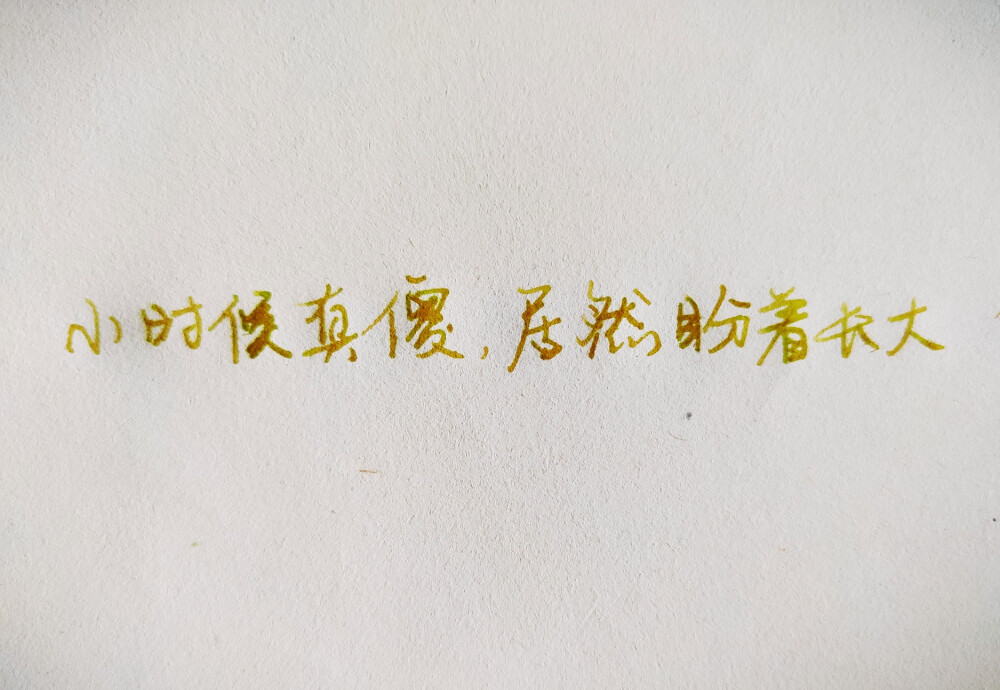 小时候真傻，居然盼着长大